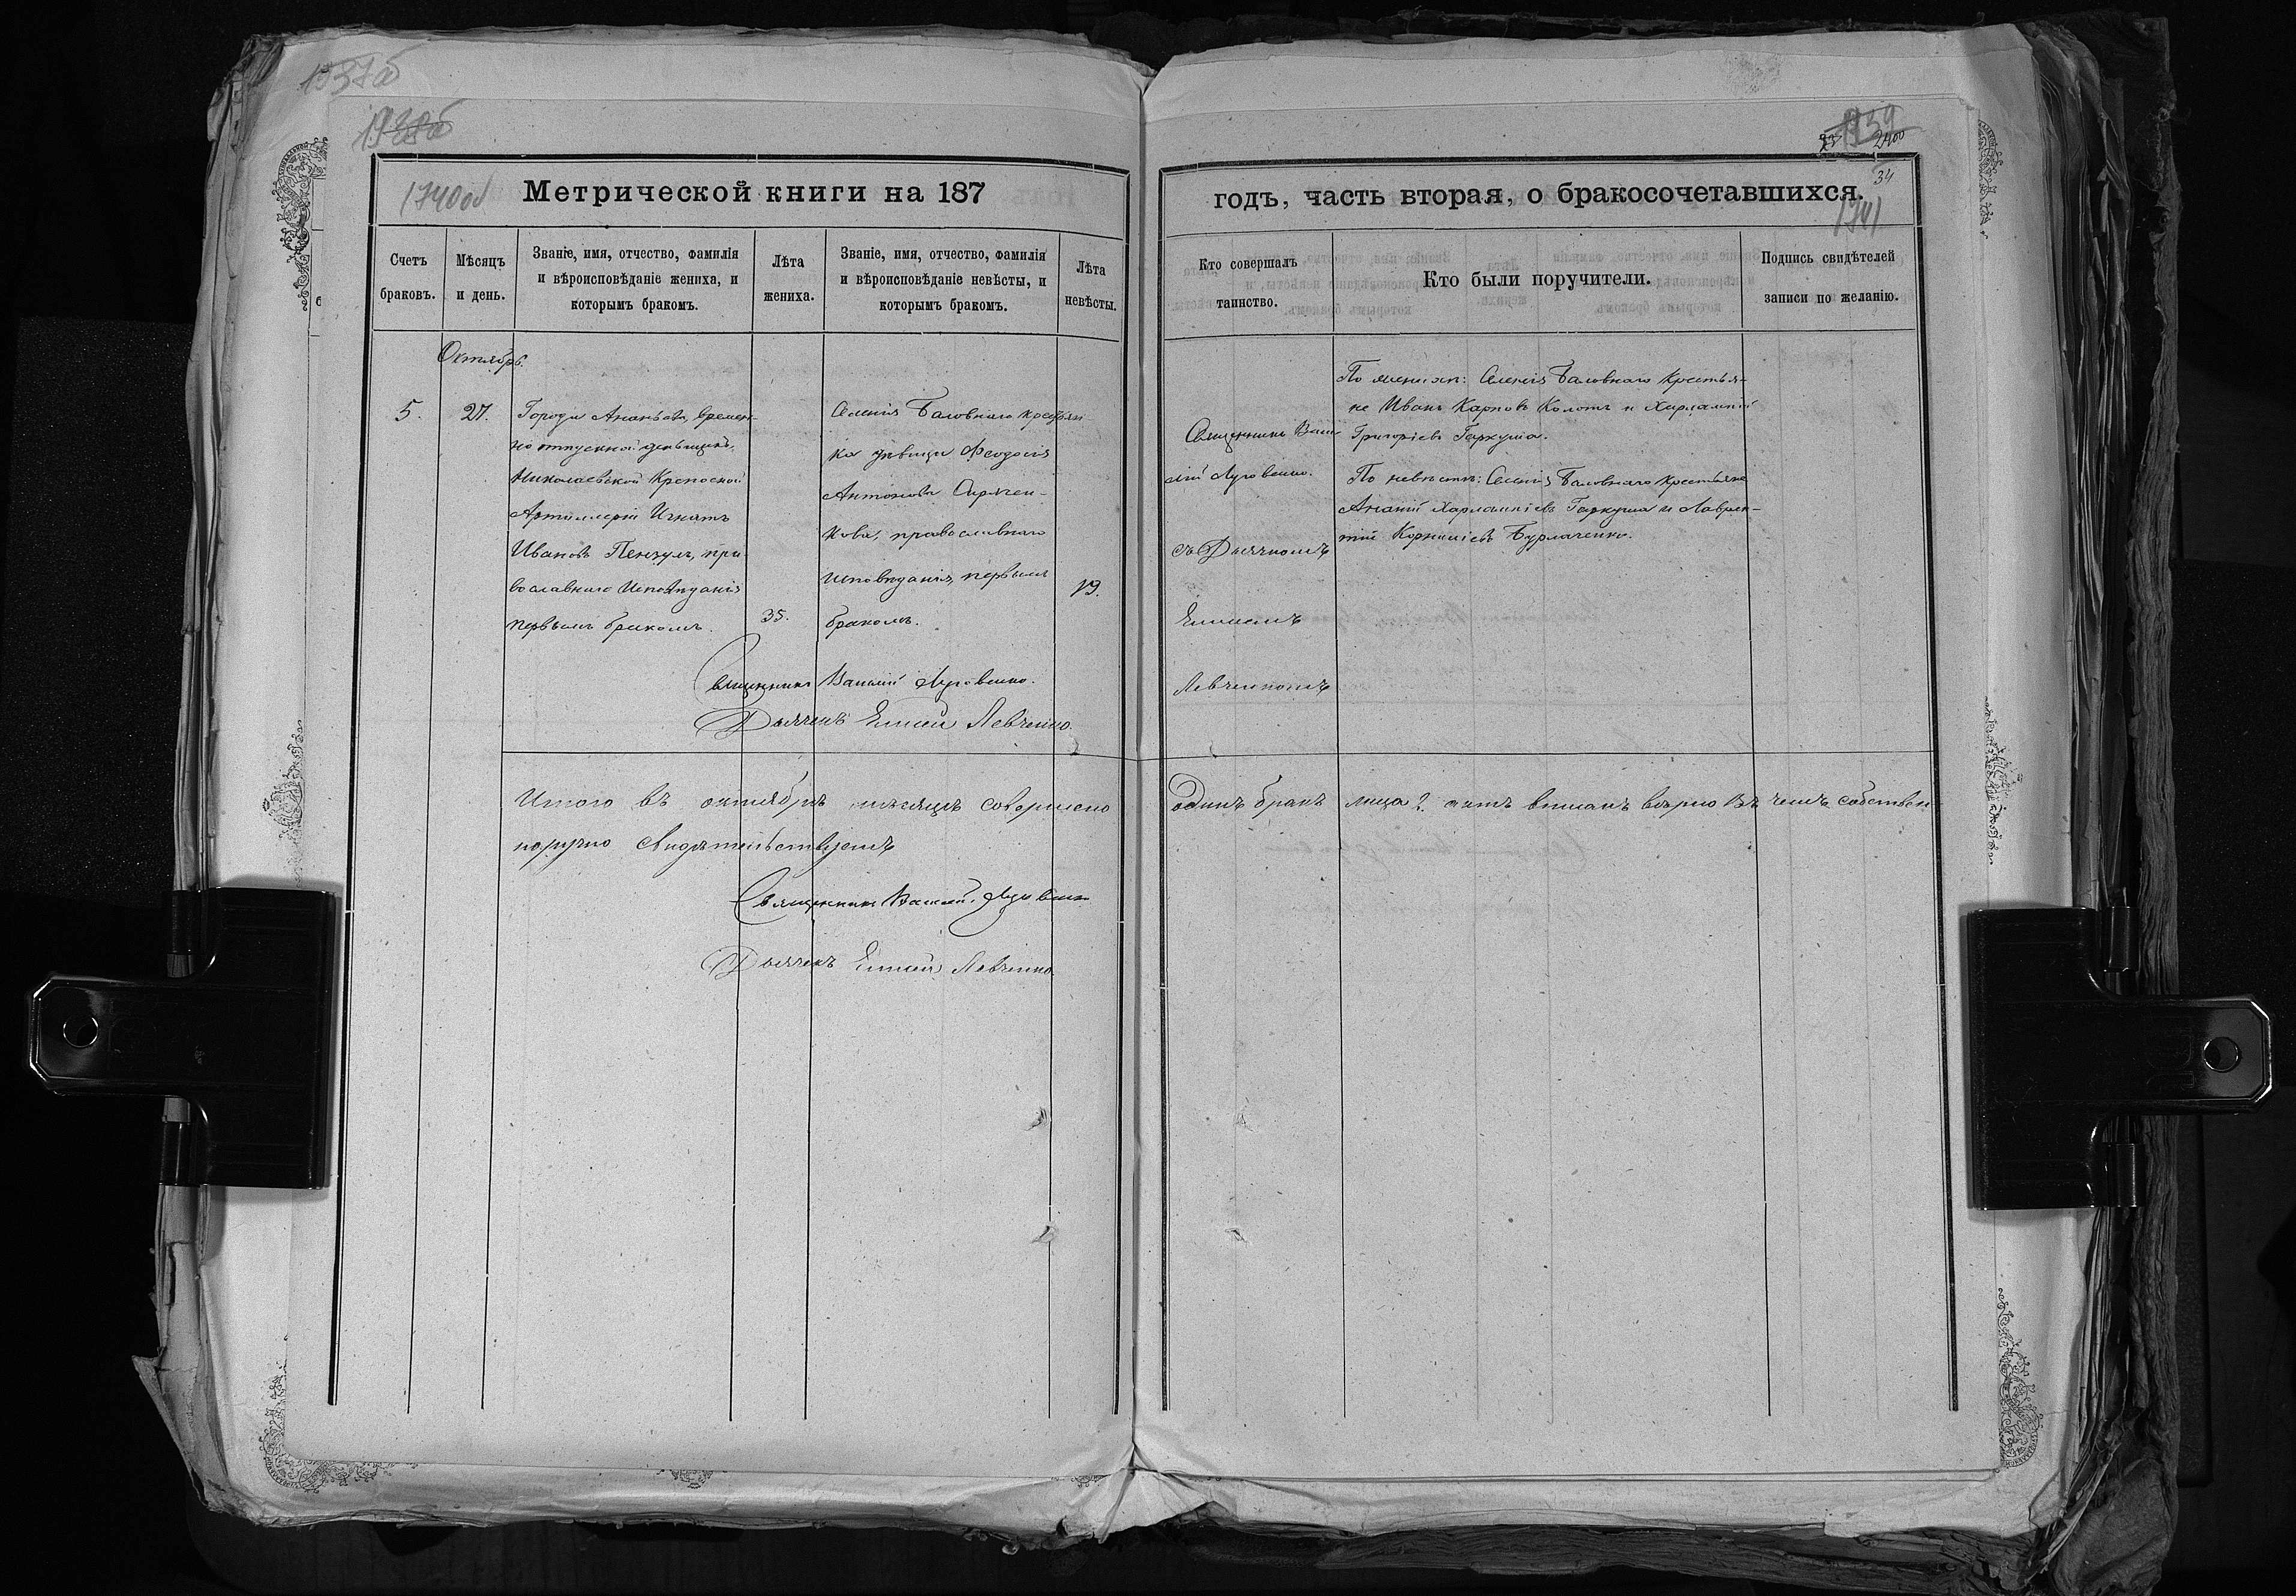 1937об
1938об
1939
2400
34
1740об
1741
Метрической книги на 187
годъ, часть вторая, о бракосочетавшихся.
Счетъ браковъ.
Мѣсяцъ и день.
Званіе, имя, отчество, фамилія и вѣроисповѣданіе жениха, и которымъ бракомъ.
Лѣта жениха.
Званіе, имя, отчество, фамилія и вѣроисповѣданіе невѣсты, и которымъ бракомъ.
Лѣта невѣсты.
Кто совершалъ таинство.
Кто были поручители.
Подпись свидѣтелей записи по желанію.
Октябрь.
5.
27.
Города Ананьева, времен-
но отпускной
Николаевской Крепосной
Артиллеріи Игнатъ
Ивановъ пра-
вославнаго Исповѣданія
первымъ бракомъ.
35.
Селенія Баловнаго крестьян
ка дѣвица Феодосія
Антонова
кова, православнаго
исповѣданія, первымъ
бракомъ.
19.
Священникъ Васи
лій Луговенко.
съ Дьячкомъ
Елисеемъ
Левченкомъ
По женихѣ: Селенія Баловнаго Крестья-
не Иванъ Карповъ Колотъ и Харлампій
Григоріевъ Гаркуша.
По невѣстѣ: Селенія Баловнаго Крестьяне
Ананій Харлампіевъ Гаркуша и Лаврен-
тій Корниліевъ Бурлаченко.
Священникъ Василій Луговенко.
Дьячекъ Елисей Левченко.
Итого въ октябрѣ мѣсяцѣ совершено одинъ бракъ лица 2 актъ вписанъ вѣрно въ чемъ собствен-
норучно свидѣтельствуемъ
Священникъ Василій Луговенко
Дьячекъ Елисей Левченко.